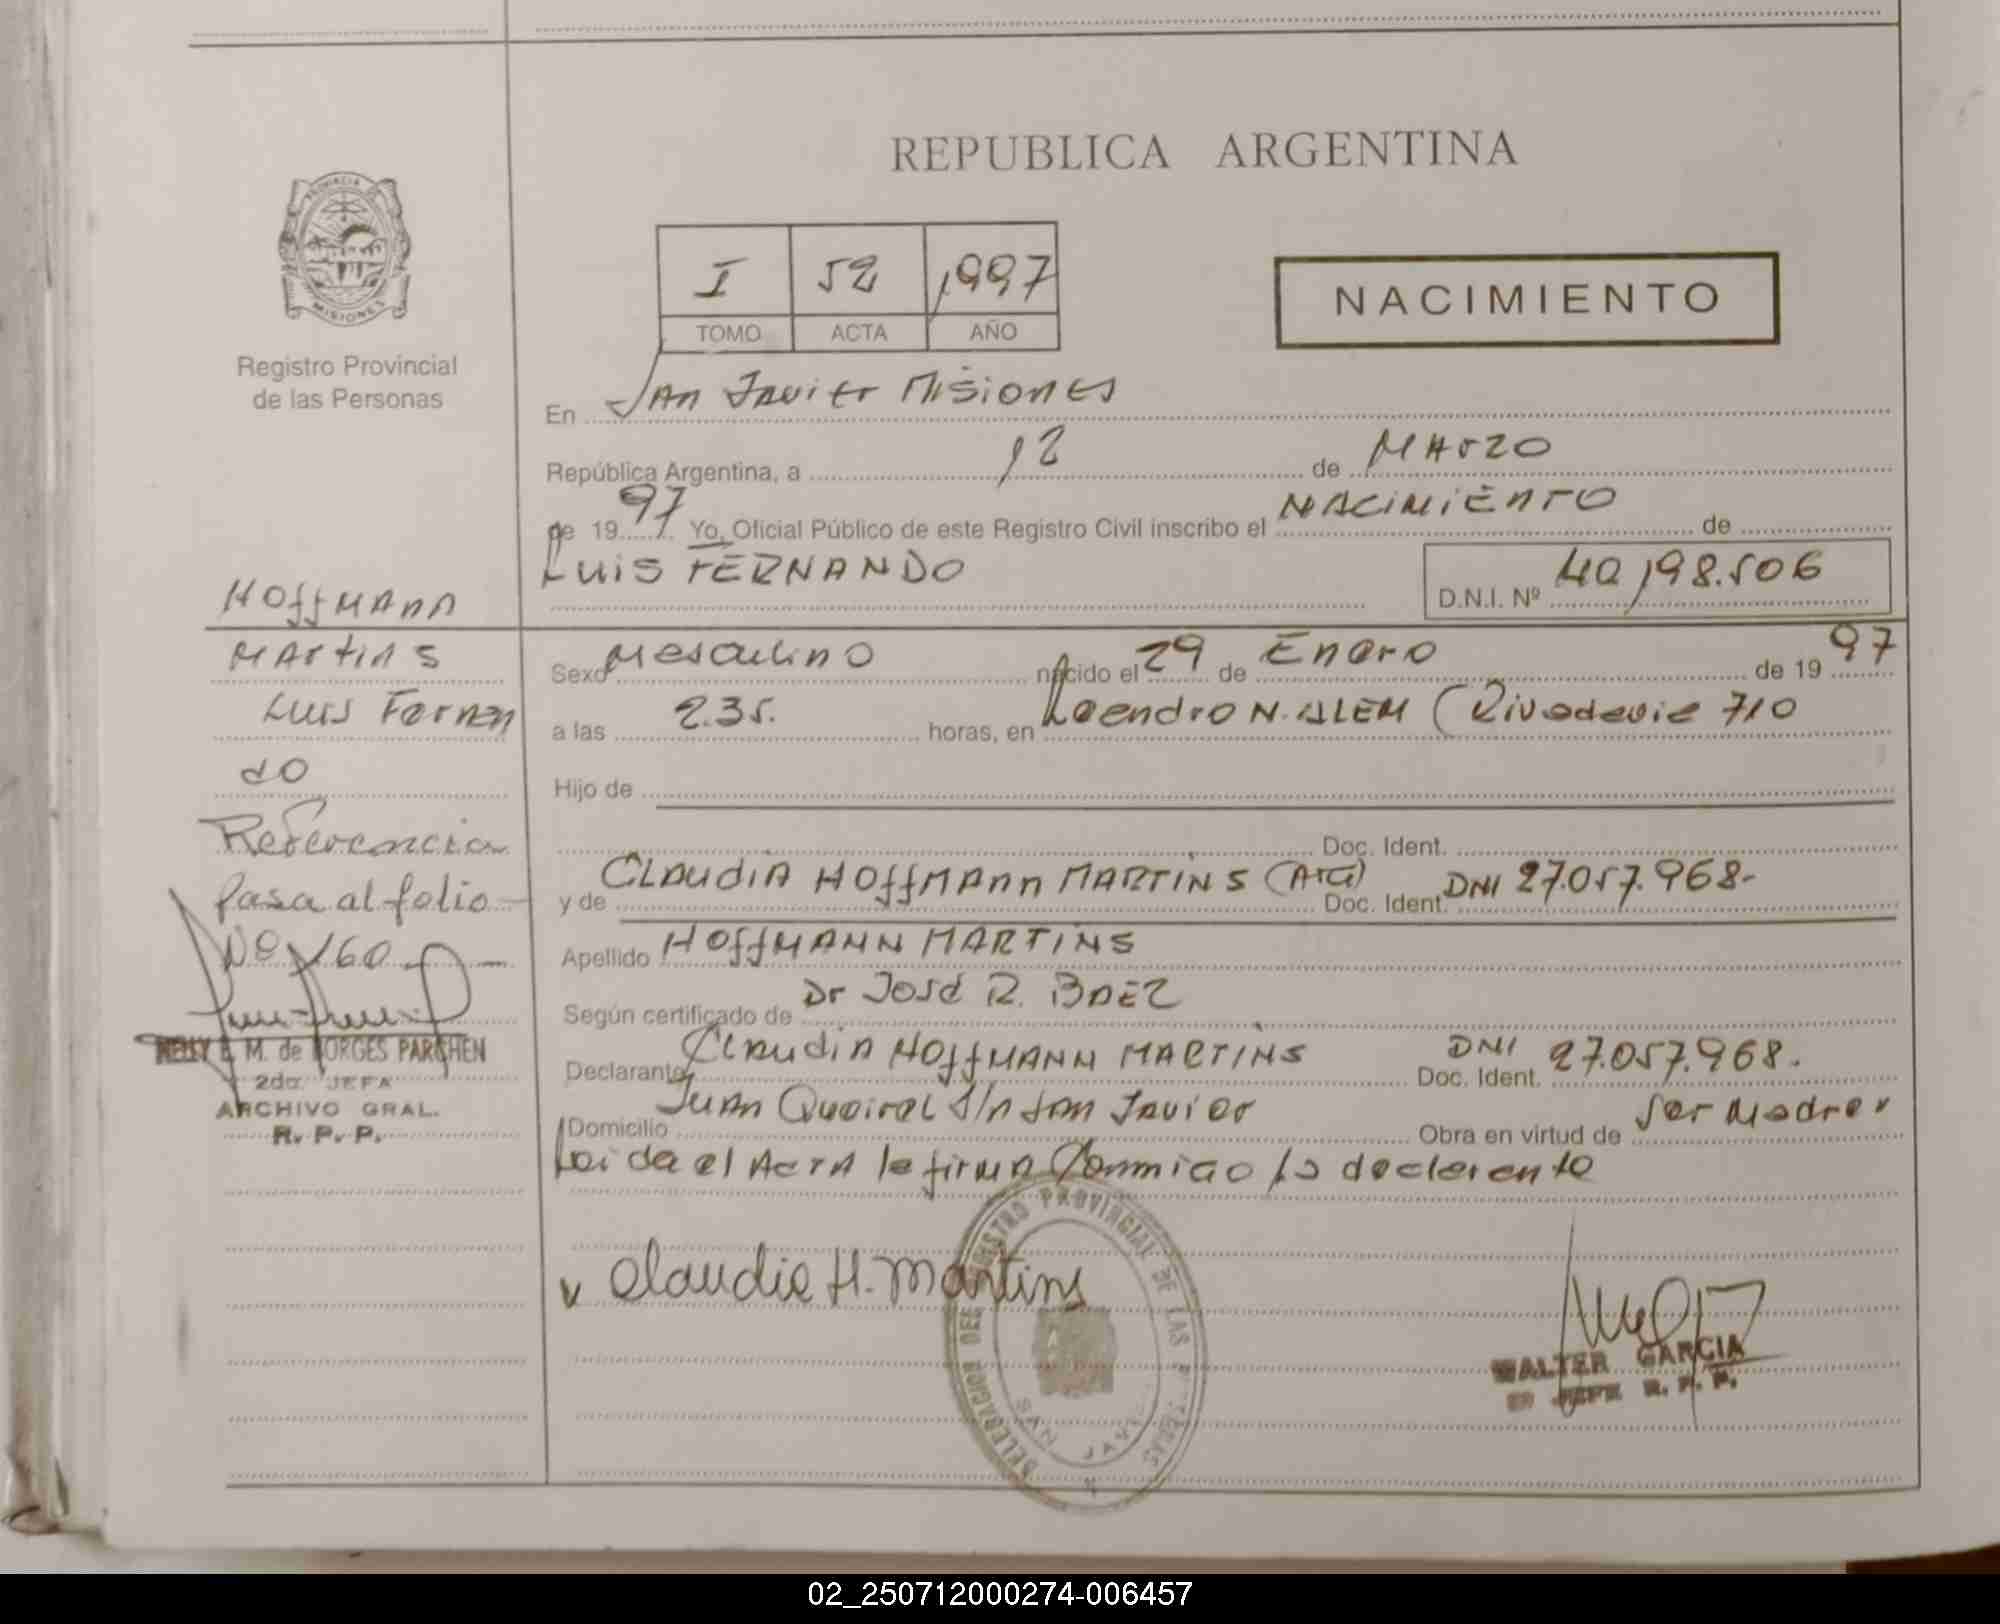 REPUBLICA ARGENTINA
PROVINCIA
MISIONES
Registro Provincial
de las Personas
I 52 1997
TOMO ACTA AÑO
NACIMIENTO
En San Javier Misiones
República Argentina, a 12 de Marzo
de 1997 Yo, Oficial Público de este Registro Civil inscribo el NACIMIENTO de
LUIS FERNANDO
D.N.I. Nº 40.198.506
Hoffmann
Martins
Luis Fernan
do
Referencia
Pasa al folio
Nº 160
NELLY E. M. de BORGES PARCHEN
2da. JEFA
ARCHIVO GRAL.
R. P. P.
Sexo Masculino nacido el 29 de Enero de 1997
a las 2.35. horas, en Leandro N. ALEM (Rivadavia 710
Hijo de
Doc. Ident.
y de Claudia Hoffmann Martins (Arg) Doc. Ident. DNI 27.057.968-
Apellido Hoffmann Martins
Según certificado de Dr José R. Baez
Declarante Claudia Hoffmann Martins Doc. Ident. DNI 27.057.968.
Domicilio Juan Queirel S/n San Javier Obra en virtud de ser madre
Leida el Acta la firma conmigo la declarante
v Claudia H. Martins
DELEGACION DEL REGISTRO PROVINCIAL DE LAS
SAN JAVIER
WALTER GARCIA
JEFE R. P. P.
02_250712000274-006457